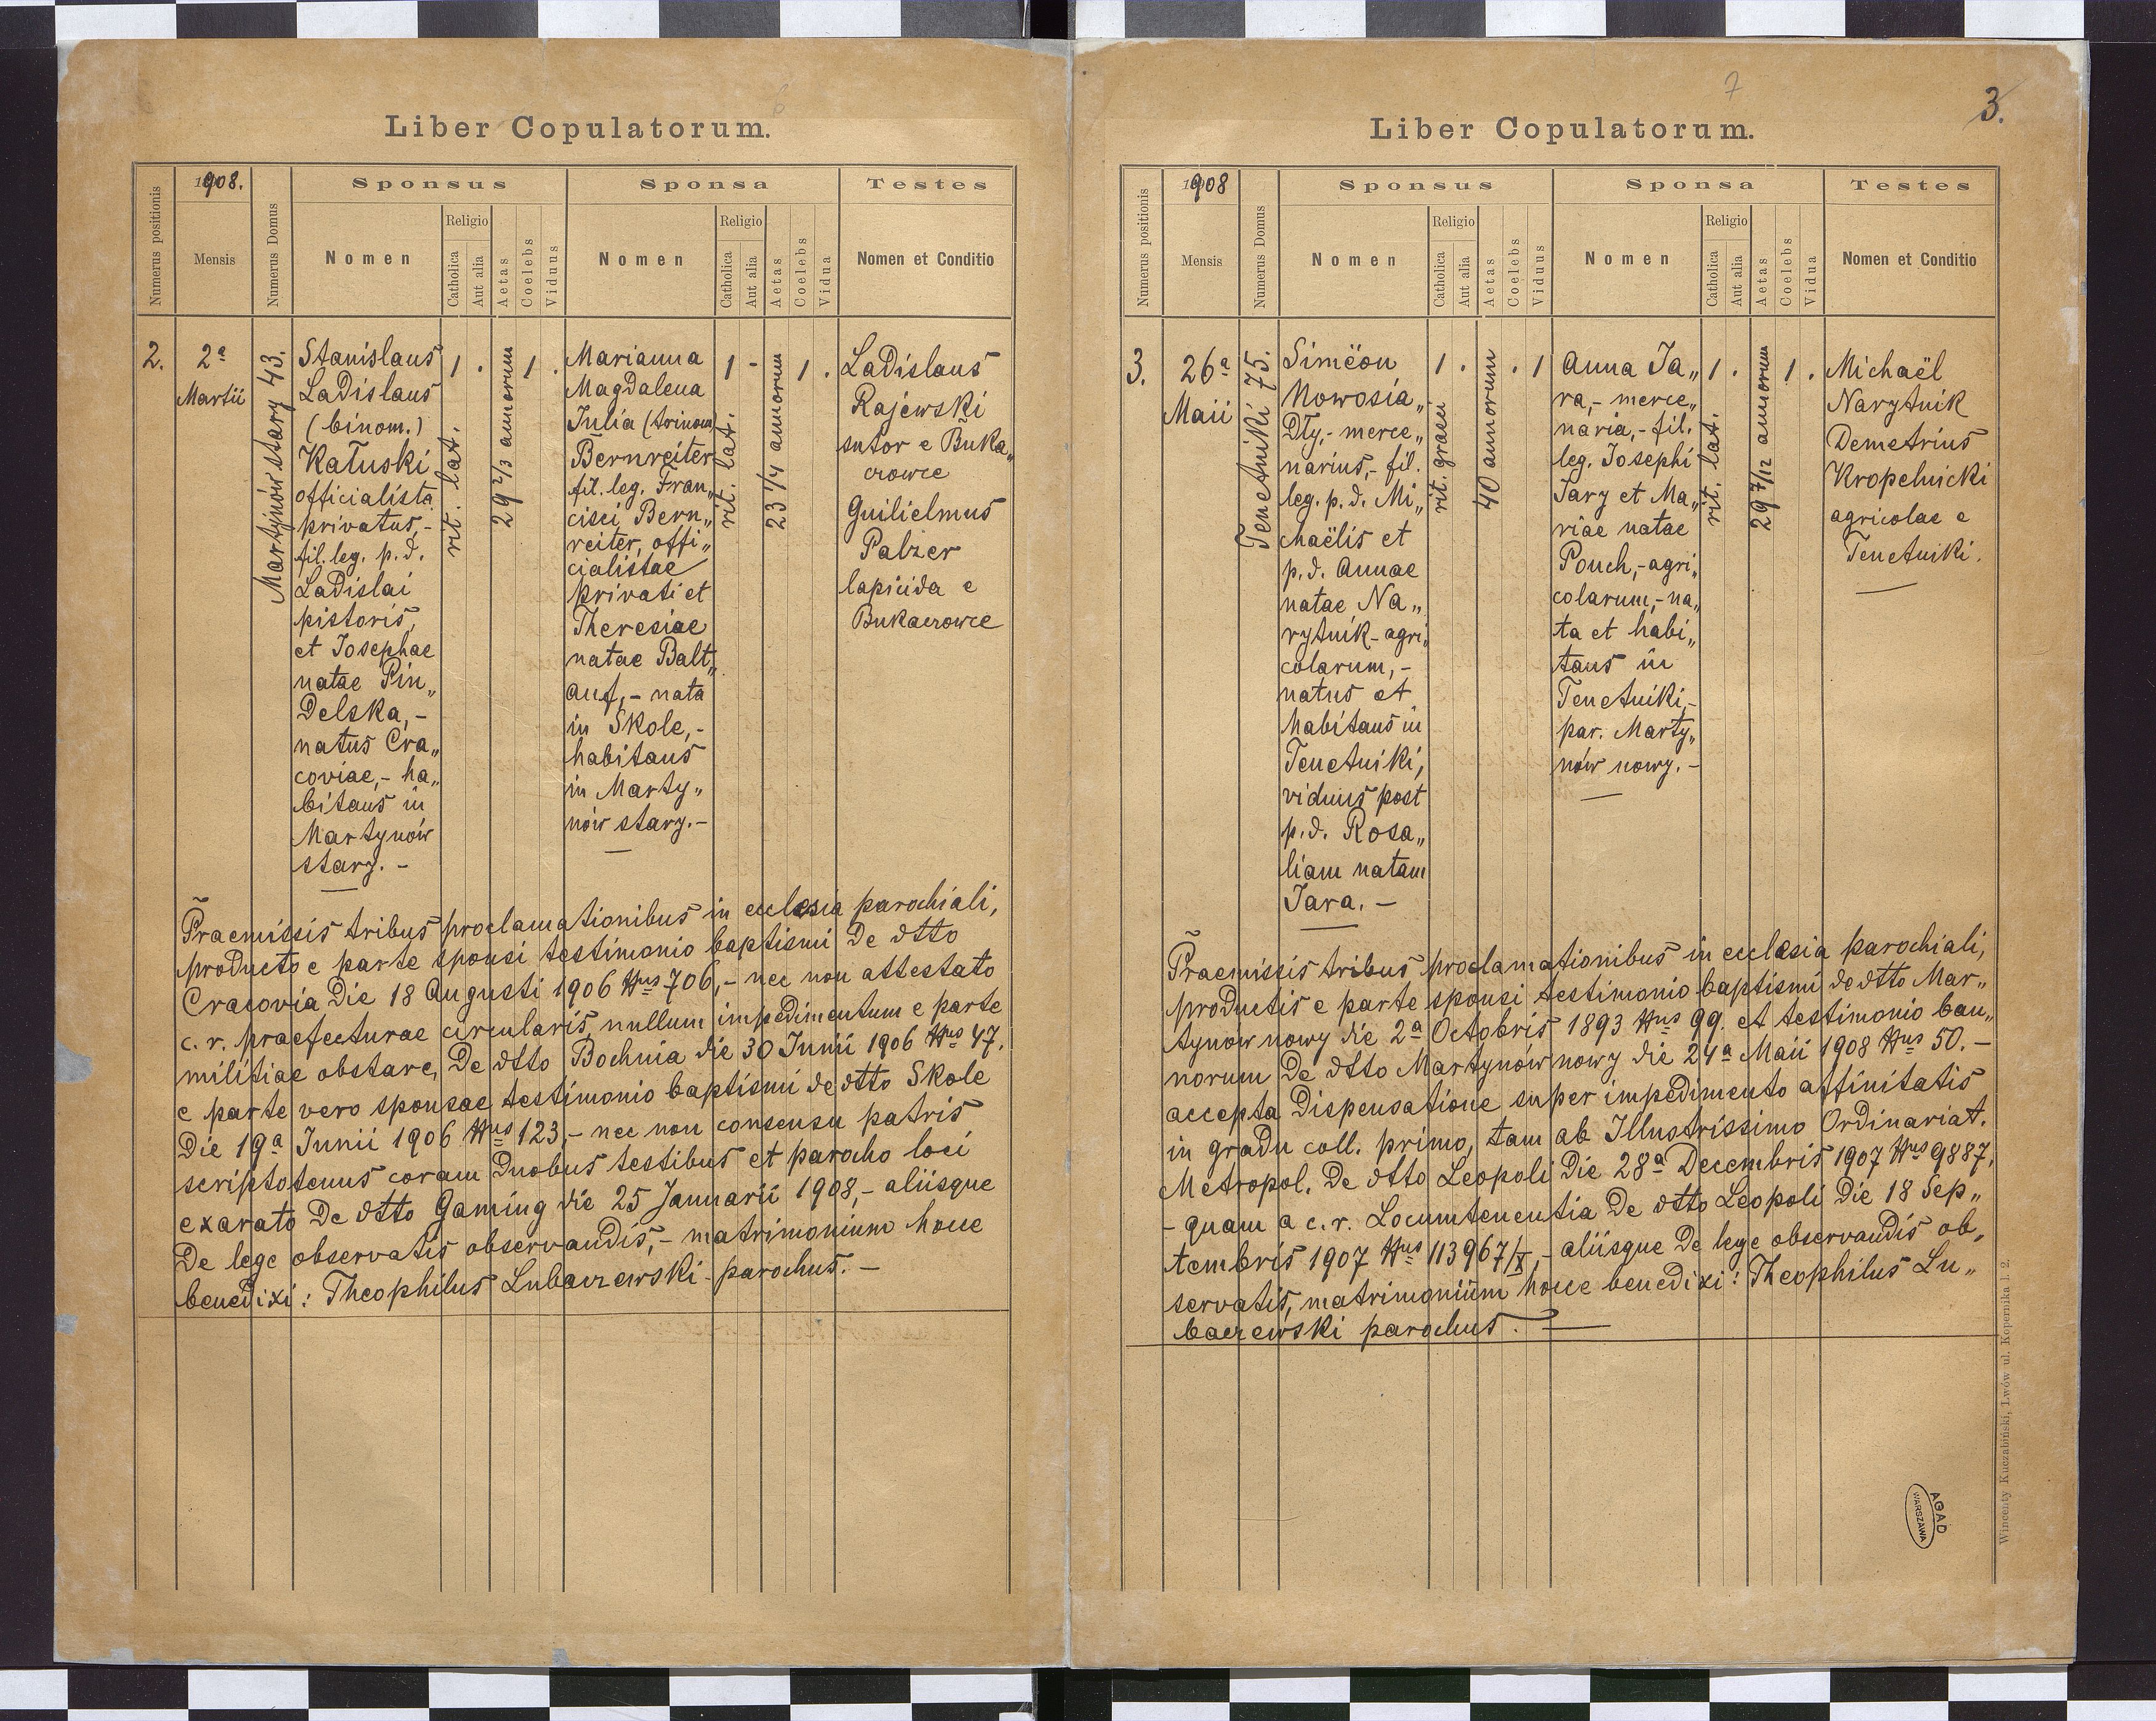 6
Liber Copulatorum.
Numerus positionis
1908.
Mensis
Numerus Domus
Sponsus
Nomen
Religio
Catholica
Aut alia
Aetas
Coelebs
Viduus
Sponsa
Nomen
Religio
Catholica
Aut alia
Aetas
Coelebs
Vidua
Testes
Nomen et Conditio
2.
2a
Martii
Martynów stary 43.
Stanislaus
Ladislaus
(binom.)
Kałuski
officialista
privatus,-
fil. leg. p. d.
Ladislai
pistoris,
et Josephae
natae Pin„
delska,-
natus Cra„
coviae,- ha„
bitans in
Martynów
stary.-
1 .
rit. lat.
29 2/3 annorum
1 .
Marianna
Magdalena
Julia (trinom)
Bernreiter
fil. leg. Fran„
cisci Bern„
reiter, offi„
cialistae
privati et
Theresiae
natae Balt„
auf,- nata
in Skole,-
habitans
in Marty„
nów stary.-
1 -
rit. lat.
23 1/4 annorum
1 .
Ladislaus
Rajewski
sutor e Buka„
czowce
Guilielmus
Palzer
lapicida e
Bukaczowce
Praemissis tribus proclamationibus in ecclesia parochiali,
producto e parte sponsi testimonio baptismi de dtto
Cracovia die 18 Augusti 1906 Nus 706,- nec non attestato
c. r. praefecturae circularis, nullum impedimentum e parte
militiae obstare, de dtto Bochnia die 30 Junii 1906 Nus 47.
e parte vero sponsae testimonio baptismi de dtto Skole
die 19a Junii 1906 Nus 123,- nec non consensu patris
scriptotenus coram duobus testibus et parocho loci
exarato de dtto Gaming die 25 Januarii 1908,- aliisque
de lege observatis observandis,- matrimonium hocce
benedixi: Theophilus Lubaczewski - parochus.-
7
3.
Liber Copulatorum.
Numerus positionis
1908
Mensis
Numerus Domus
Sponsus
Nomen
Religio
Catholica
Aut alia
Aetas
Coelebs
Viduus
Sponsa
Nomen
Religio
Catholica
Aut alia
Aetas
Coelebs
Vidua
Testes
Nomen et Conditio
3.
26a
Maii
Tenetniki 75.
Simëon
Nowosia„
dły,- merce„
narius,- fil.
leg. p. d. Mi„
chaëlis et
p. d. Annae
natae Na„
rytnik - agri„
colarum,-
natus et
habitans in
Tenetniki,
viduus post
p. d. Rosa„
liam natam
Jara.-
1 .
rit. graeci
40 annorum
. 1
Anna Ja„
ra,- merce„
naria,- fil.
leg. Josephi
Jary et Ma„
riae natae
Pouch,- agri„
colarum,- na„
ta et habi„
tans in
Tenetniki,-
par. Marty„
nów nowy.-
1 .
rit. lat.
29 7/12 annorum
1 .
Michaël
Narytnik
Demetrius
Kropelnicki
agricolae e
Tenetniki.
Praemissis tribus proclamationibus in ecclesia parochiali,
productis e parte sponsi testimonio baptismi de dtto Mar„
tynów nowy die 2a Octobris 1893 Nus 99. et testimonio ban„
norum de dtto Martynów nowy die 24a Maii 1908 Nus 50.-
accepta dispensatione super impedimento affinitatis
in gradu coll. primo, tam ab Illustrissimo Ordinariat.
Metropol. de dtto Leopoli die 28a Decembris 1907 Nus 9887,
- quam a c. r. Locumtenentia de dtto Leopoli die 18 Sep„
tembris 1907 Nus 113967/X,- aliisque de lege observandis ob„
servatis, matrimonium hocce benedixi: Theophilus Lu„
baczewski parochus.
AGAD
WARSZAWA
Wincenty Kuczabiński, Lwów ul. Kopernika l. 2.